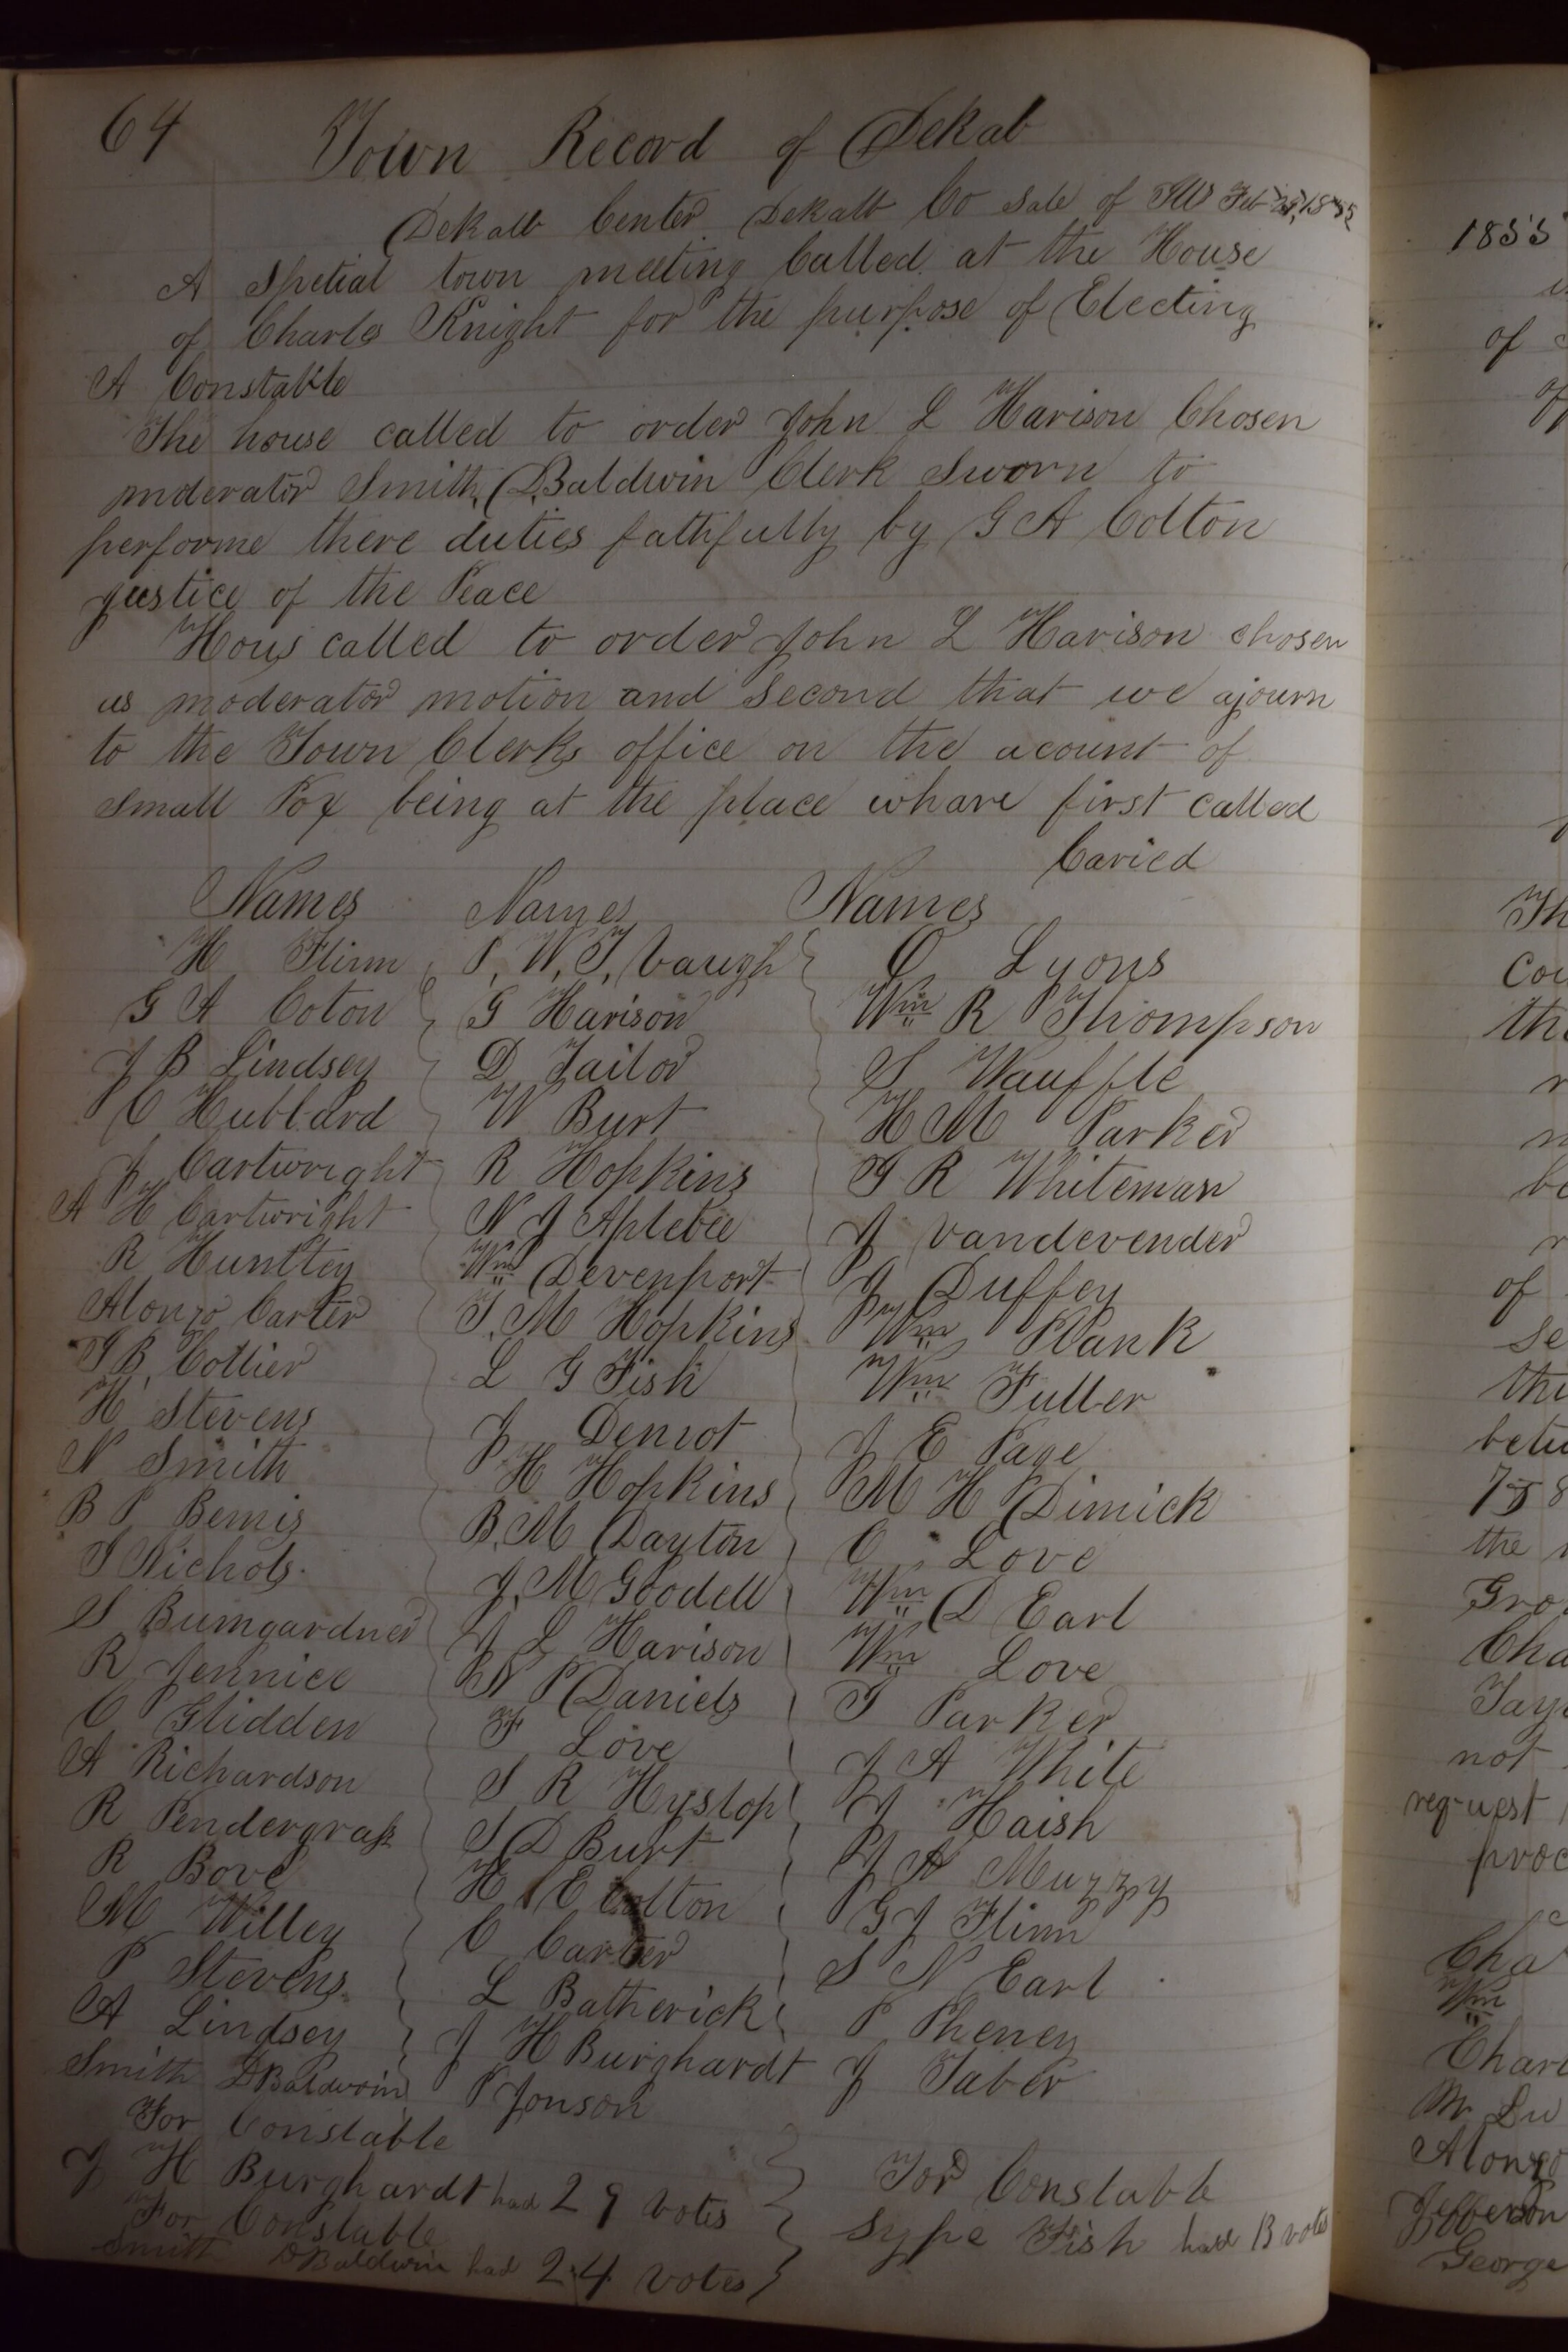 64 Town Record of Dekab
Dekalb Center Dekalb Co Sate of Ills Feb 1855
A Spetial town meeting Called at the House
of Charls Knight for the purpose of Electing
A Constable
The house called to order John L Harison Chosen
mderator Smith D Baldwin Clerk Sworn to
performe there duties fathfully by G A Colton
justice of the Peace
Hous called to order John L Harison chosen
as moderator motion and Second that we ajourn
to the Town Clerks office on the acount of
Small Pox being at the place whare first called
Caried
Names Names Names
H Flinn P. W. T. Vaugh O Lyons
G A Coton G Harison Wm R Thompson
J B Lindsey D Tailor S Wauffle
C Hubbard W Burt H M Parker
J Cartwright R Hopkins G R Whiteman
A H Cartwright N J Aplebee J Vandevender
R Huntley Wm Devenport J Duffey
Alonzo Carter S. M Hopkins Wm Plank
T B. Collier L G Fish Wm Fuller
H Stevens J Denrot J E Page
N Smith H Hopkins M H Dimick
B P Bemis B. M Dayton C Love
S Nichols J. M Goodell Wm D Earl
S Bumgardner J L Harison Wm Love
R Jennice N P Daniels T Parker
C Glidden F Love J A White
A Richardson S R Hyslop J Haish
R Pendergrass S D Burt J A Muzzy
R Bove H E Colton G J Flinn
M Willey C Carter S N Earl
P Stevens L Batherick P Pheney
A Lindsey J H Burghardt J Taber
Smith D Baldwin P Jonson
For Constable
J H Burghardt had 29 votes
For Constable
Sype Fish had 13 votes
For Constable
Smith D Baldwin had 24 votes
1855
of
Th
Cou
the
of
Se
the
betw
758
the
Gro
Cha
Tay
not
request
proc
Cha
Wm
Charl
Mr Lu
Alonzo
Jefferson
George